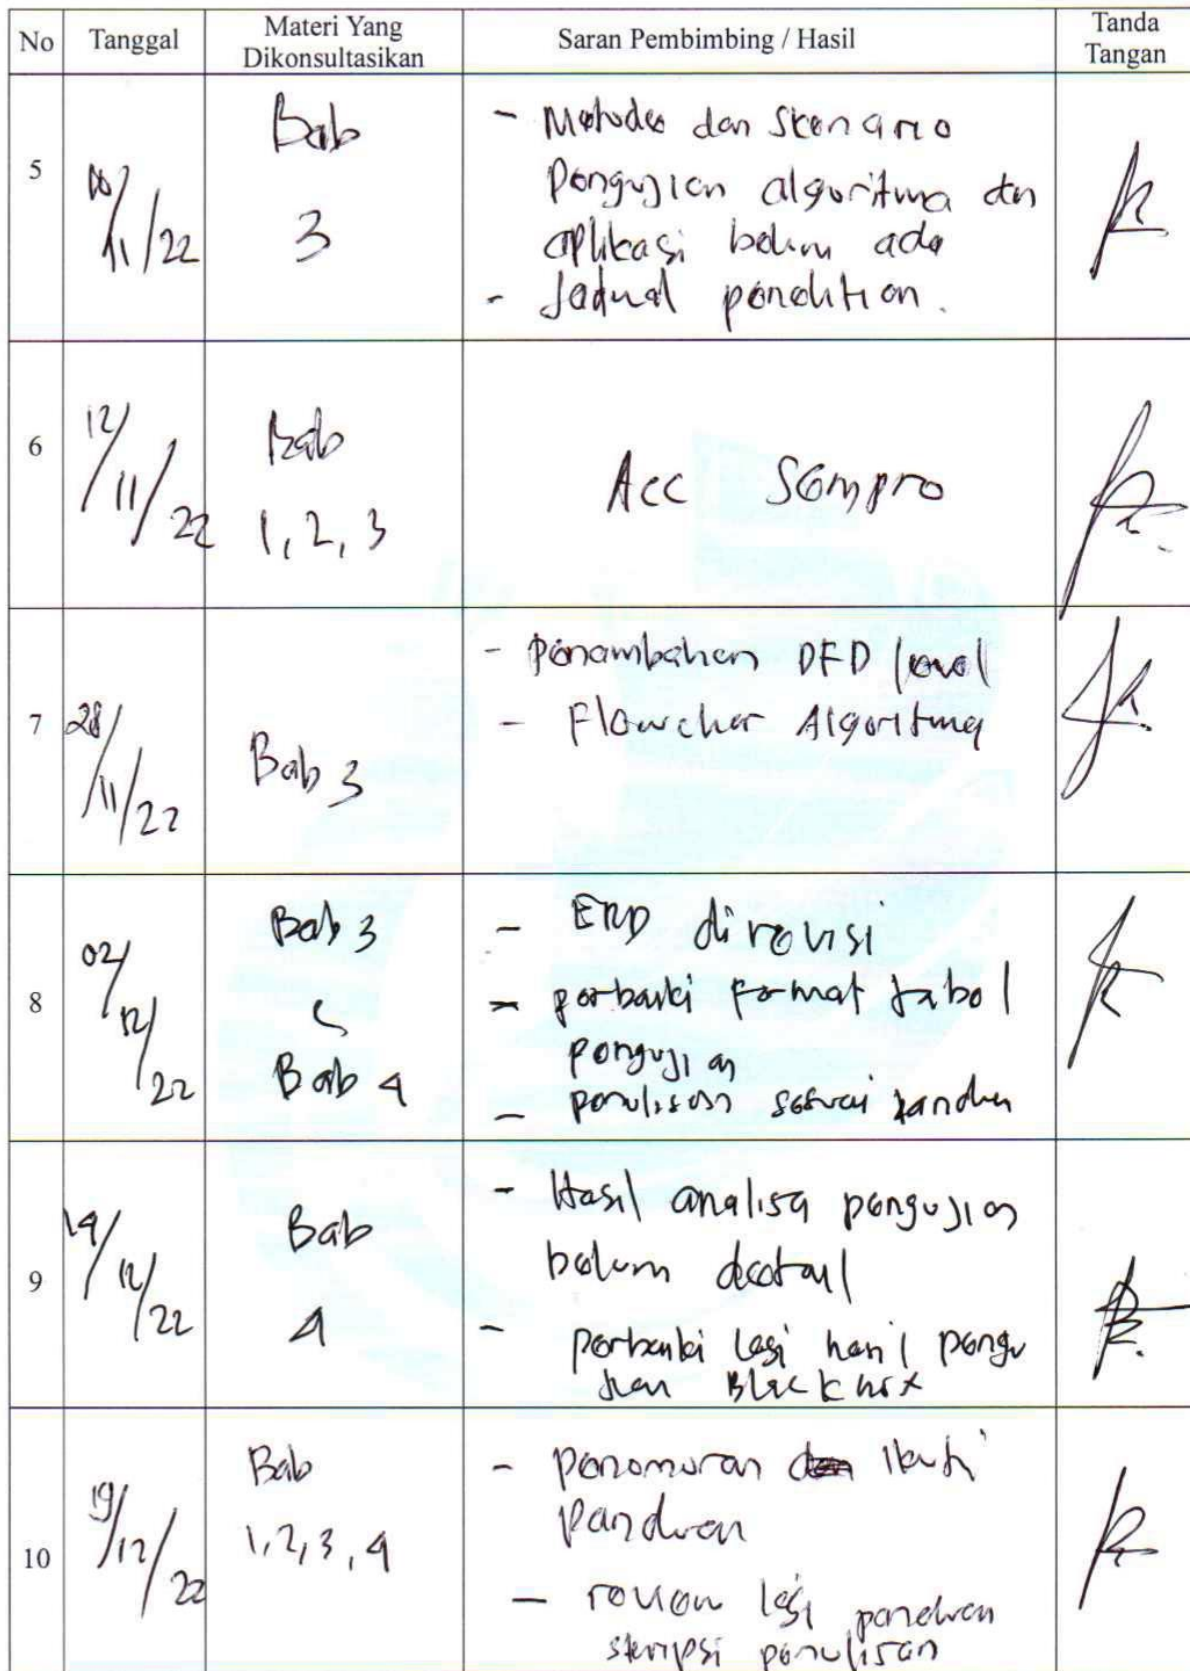 No Tanggal Materi Yang Dikonsultasikan Saran Pembimbing / Hasil Tanda Tangan
5
/11/22
Bab
3
- Metode dan Skenario
Pengujian algoritma dan
aplikasi belum ada
- Jadual penelitian.
6
12/11/22
Bab
1, 2, 3
Acc Sempro
7
28/11/22
Bab 3
- Penambahan DFD level
- Flowchar Algoritma
8
02/12/22
Bab 3
Bab 4
- ERD direvisi
- perbaiki format tabel
pengujian
- penulisan sesuai
9
14/12/22
Bab
4
- Hasil analisa pengujian
belum deetail
- perbaiki lagi hasil pengu
jian Blackbox
10
19/12/22
Bab
1, 2, 3, 4
- penomoran ikuti
panduan
- review lagi panduan
skripsi penulisan